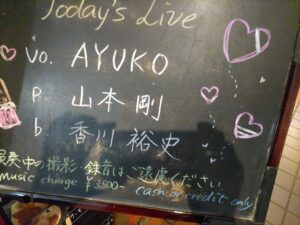 Today's Live
Vo. AYUKO
p 山本 剛
b. 香川 裕史
演奏中の撮影・録音はご遠慮ください
music charge ¥3500-
cash or credit only